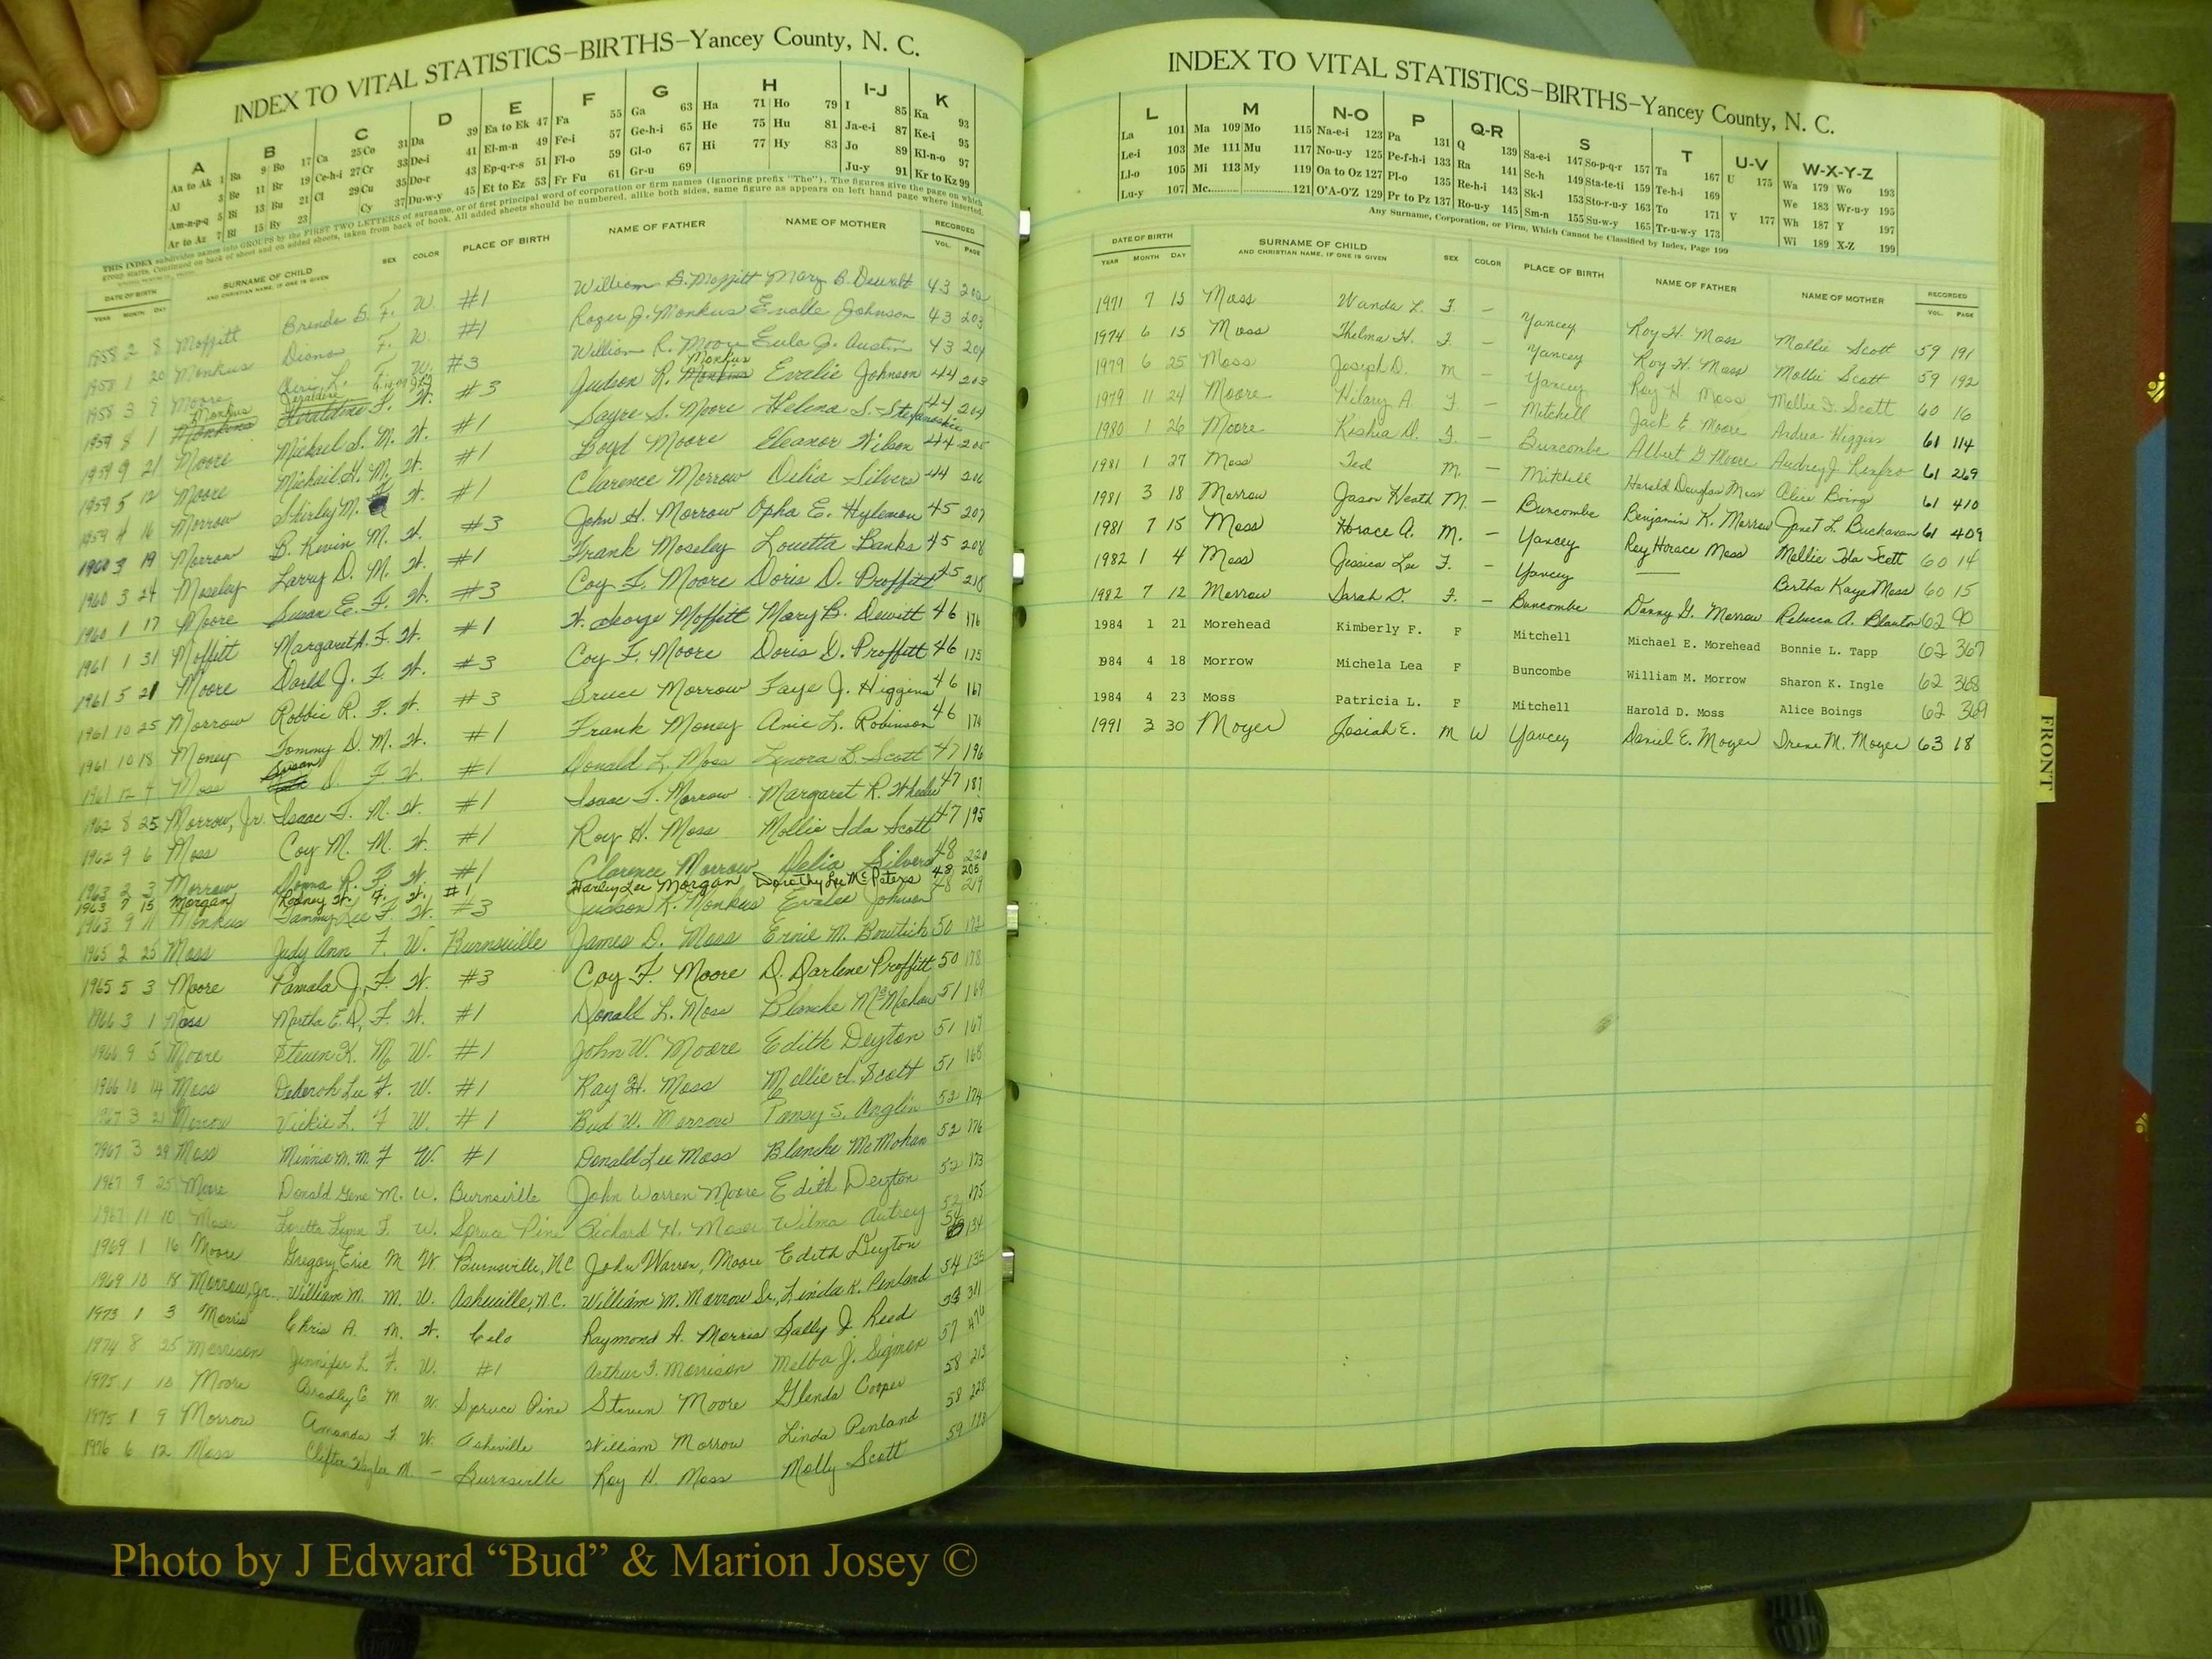 INDEX TO VITAL STATISTICS–BIRTHS–Yancey County, N. C.
A B C D E F G H I-J K
Aa to Ak 1 Ba 9 Bo 17 Ca 25 Co 31 Da 39 Ea to Ek 47 Fa 55 Ga 63 Ha 71 Ho 79 I 85 Ka 93
Al 3 Be 11 Br 19 Ce-h-i 27 Cr 33 De-i 41 El-m-n 49 Fe-i 57 Ge-h-i 65 He 75 Hu 81 Ja-e-i 87 Ke-i 95
Am-n-p-q 5 Bi 13 Bu 21 Cl 29 Cu 35 Do-r 43 Ep-q-r-s 51 Fl-o 59 Gl-o 67 Hi 77 Hy 83 Jo 89 Kl-n-o 97
Ar to Az 7 Bl 15 By 23 Cy 37 Du-w-y 45 Et to Ez 53 Fr Fu 61 Gr-u 69 Ju-y 91 Kr to Kz 99
THIS INDEX subdivides names into GROUPS by the FIRST TWO LETTERS of surname, or of first principal word of corporation or firm names (ignoring prefix "The"). The figures give the page on which
group starts. Continued on back of sheet and on added sheets, taken from back of book. All added sheets should be numbered, alike both sides, same figure as appears on left hand page where inserted.
DATE OF BIRTH SURNAME OF CHILD SEX COLOR PLACE OF BIRTH NAME OF FATHER NAME OF MOTHER RECORDED
YEAR MONTH DAY AND CHRISTIAN NAME, IF ONE IS GIVEN VOL. PAGE
1958 2 8 Moffitt Brenda G. F. W. #1 William G. Moffitt Mary B. Dewitt 43 202
1958 1 20 Monkus Diana F. W. #1 Roger J. Monkus Evalle Johnson 43 203
1958 3 9 Moore L. F. W. #3 William R. Moore Eula J. Austin 43 204
1959 8 1 Monkus Geraldine F. W. #3 Judson R. Monkus Evalie Johnson 44 203
1959 9 21 Moore Michael S. M. W. #1 Sayre S. Moore Helena S. 44 204
1959 5 12 Moore Michail H. M. W. #1 Boyd Moore Eleanor Wilson 44 205
1959 4 16 Morrow Shirley M. F W. #1 Clarence Morrow Delia Silvers 44 206
1960 3 19 Morrow B. Kevin M. W. #3 John H. Morrow Opha E. Hylemon 45 207
1960 3 24 Moseley Larry D. M. W. #1 Frank Moseley Louetta Banks 45 208
1960 1 17 Moore Susan E. F. W. #3 Coy F. Moore Doris D. Proffitt 45 210
1961 1 31 Moffitt Margaret A. F. W. #1 W. George Moffitt Mary B. Dewitt 46 176
1961 5 21 Moore J. F. W. #3 Coy F. Moore Doris D. Proffitt 46 175
1961 10 25 Morrow Robbie R. F. W. #3 Bruce Morrow Faye J. Higgins 46 167
1961 10 18 Money Tommy D. M. W. #1 Frank Money Anie L. Robinson 46 174
1961 12 4 Moss Susan D. F W. #1 Donald L. Moss Lenora B. Scott 47 196
1962 8 25 Morrow, Jr. Isaac F. M. W. #1 Isaac F. Morrow Margaret R. Wheeler 47 187
1962 9 6 Moss Coy M. M. W. #1 Roy H. Moss Mollie Ida Scott 47 195
1963 2 3 Morrow Donna R. F. W. #1 Clarence Morrow Delia Silvers 48 220
1963 7 15 Morgan Rodney W. F. W. #1 Harley Lee Morgan Dorothy Lee McPeters 48 205
1963 9 11 Monkus Tammy Lee F. W. #3 Judson R. Monkus Evalee Johnson 48 219
1965 2 25 Moss Judy Ann F. W. Burnsville James D. Moss Ernie M. 50 172
1965 5 3 Moore Pamala J. F. W. #3 Coy F. Moore D. Darlene Proffitt 50 178
1966 3 1 Moss Martha E. D. F. W. #1 Donald L. Moss Blanche McMahan 51 169
1966 9 5 Moore Steven K. M W. #1 John W. Moore Edith Deyton 51 167
1966 10 14 Moss Deborah Lee F W. #1 Ray H. Moss Mollie I. Scott 51 168
1967 3 21 Morrow Vickie L. F W. #1 Bud W. Morrow Pansy S. Anglin 52 174
1967 3 29 Moss Minnie M. M. F W. #1 Donald Lee Moss Blanche McMohan 52 176
1967 9 25 Moore Donald Gene M. W. Burnsville John Warren Moore Edith Deyton 52 173
1967 11 10 Moser Loretta Lynn F. W. Spruce Pine Richard H. Moser Wilma Autrey 52 175
1969 1 16 Moore Gregory Eric M W. Burnsville, N.C John Warren, Moore Edith Deyton 54 134
1969 10 18 Morrow, Jr. William M. M. W. Asheville, N.C. William M. Morrow Sr. Linda K. Penland 54 135
1973 1 3 Morris Chris A. M. W. Celo Raymond A. Morris Sally J. Reed 311
1974 8 25 Morrison Jennifer L F. W. #1 Arthur F. Morrison Melba J. Sigmon 57 474
1975 1 10 Moore Bradley C M W. Spruce Pine Steven Moore Glenda Cooper 58 213
1975 1 9 Morrow Amanda F. W. Asheville William Morrow Linda Penland 58 228
1976 6 12 Moss M. – Burnsville Roy H. Moss Molly Scott 59 193
INDEX TO VITAL STATISTICS–BIRTHS–Yancey County, N. C.
L M N-O P Q-R S T U-V W-X-Y-Z
La 101 Ma 109 Mo 115 Na-e-i 123 Pa 131 Q 139 Sa-e-i 147 So-p-q-r 157 Ta 167 U 175 Wa 179 Wo 193
Le-i 103 Me 111 Mu 117 No-u-y 125 Pe-f-h-i 133 Ra 141 Sc-h 149 Sta-te-ti 159 Te-h-i 169 We 183 Wr-u-y 195
Ll-o 105 Mi 113 My 119 Oa to Oz 127 Pl-o 135 Re-h-i 143 Sk-l 153 Sto-r-u-y 163 To 171 V 177 Wh 187 Y 197
Lu-y 107 Mc 121 O'A-O'Z 129 Pr to Pz 137 Ro-u-y 145 Sm-n 155 Su-w-y 165 Tr-u-w-y 173 Wi 189 X-Z 199
Any Surname, Corporation, or Firm, Which Cannot be Classified by Index, Page 199
DATE OF BIRTH SURNAME OF CHILD SEX COLOR PLACE OF BIRTH NAME OF FATHER NAME OF MOTHER RECORDED
YEAR MONTH DAY AND CHRISTIAN NAME, IF ONE IS GIVEN VOL. PAGE
1971 7 13 Moss Wanda L. F. – Yancey Roy H. Moss Mollie Scott 59 191
1974 6 15 Moss Thelma H. F. – Yancey Roy H. Moss Mollie Scott 59 192
1979 6 25 Moss Joseph D. M – Yancey Roy H Moss Mollie I. Scott 60 16
1979 11 24 Moore Hilary A. F. – Mitchell Jack E Moore Andrea Higgins 61 114
1980 1 26 Moore Keshia D. F. – Buncombe Albert G Moore Audrey J. Renfro 61 269
1981 1 27 Moss Ted M. – Mitchell Harold Douglas Moss Alice Boing 61 410
1981 3 18 Morrow Jason Heath M. – Buncombe Benjamin K. Morrow Janet L. Buchanan 61 409
1981 7 15 Moss Horace A. M. – Yancey Roy Horace Moss Mollie Ida Scott 60 14
1982 1 4 Moss Jessica Lee F. – Yancey —— Bertha Kaye Moss 60 15
1982 7 12 Morrow Sarah D. F. – Buncombe Danny G. Morrow Rebecca A. Blanton 62 90
1984 1 21 Morehead Kimberly F. F Mitchell Michael E. Morehead Bonnie L. Tapp 62 367
1984 4 18 Morrow Michela Lea F Buncombe William M. Morrow Sharon K. Ingle 62 368
1984 4 23 Moss Patricia L. F Mitchell Harold D. Moss Alice Boings 62 369
1991 3 30 Moyer Josiah E. M W Yancey Daniel E. Moyer Irene M. Moyer 63 18
FRONT
Photo by J Edward “Bud” & Marion Josey ©